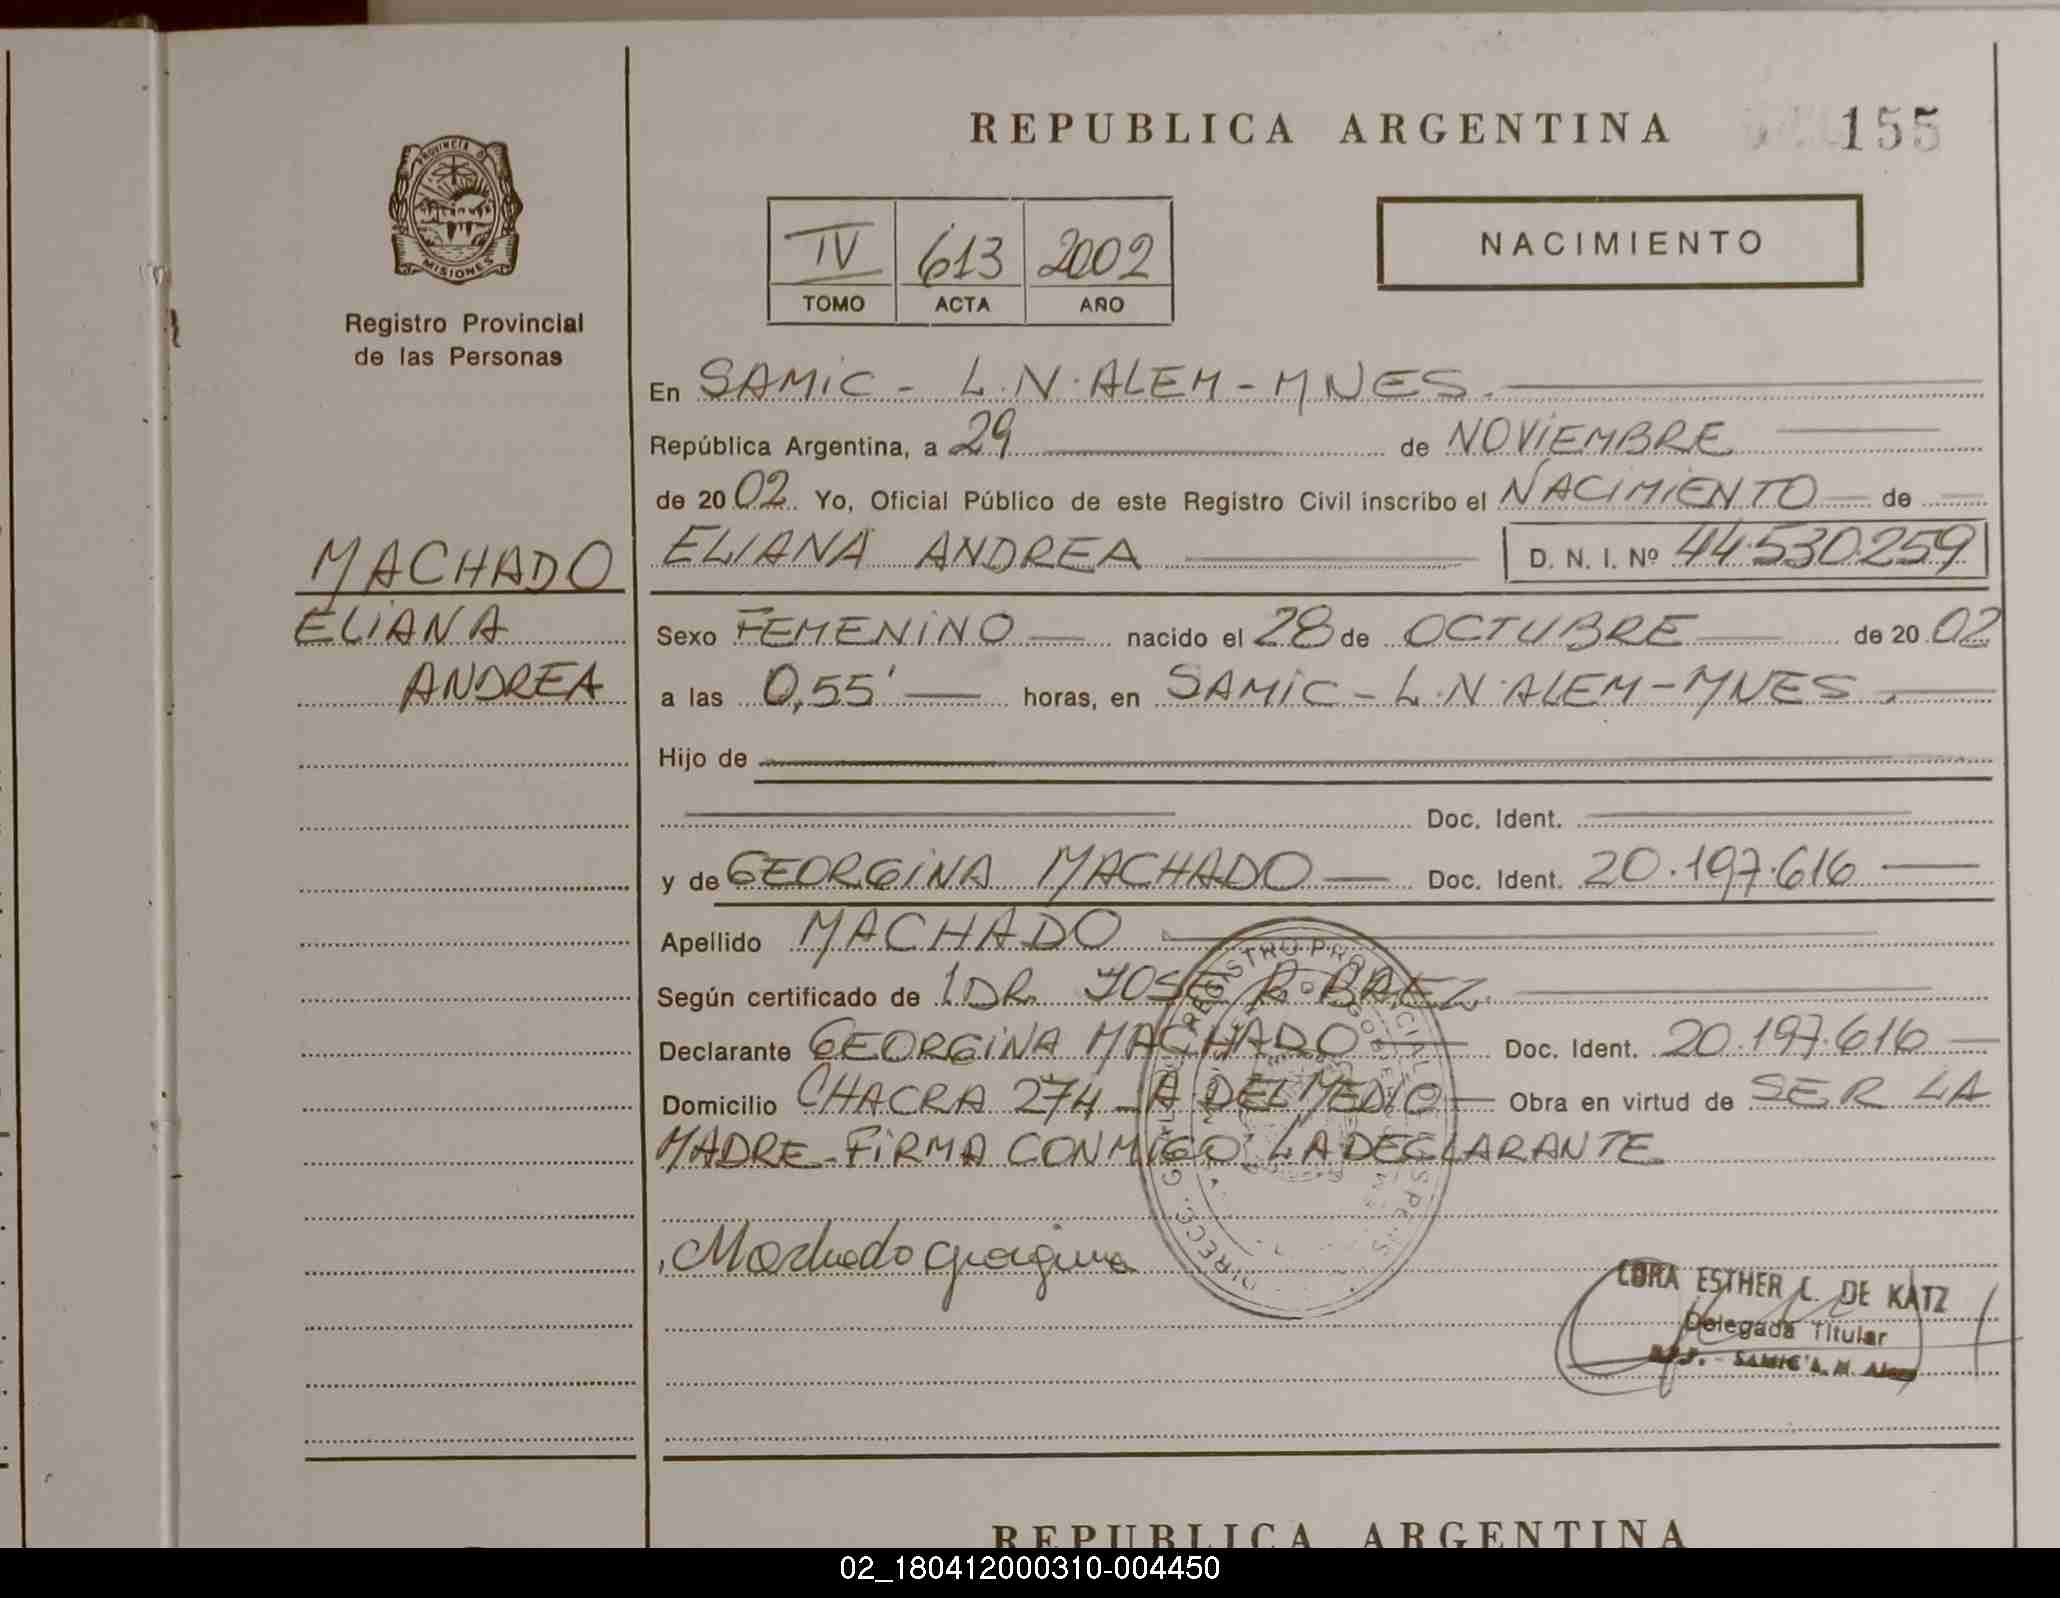 REPUBLICA ARGENTINA
155
PROVINCIA DE
MISIONES
Registro Provincial
de las Personas
IV 613 2002
TOMO ACTA AÑO
NACIMIENTO
En SAMIC - L.N. ALEM - MNES.
República Argentina, a 29 de NOVIEMBRE
de 20 02 Yo, Oficial Público de este Registro Civil inscribo el NACIMIENTO de
ELIANA ANDREA D. N. I. Nº 44.530.259
MACHADO
ELIANA
ANDREA
Sexo FEMENINO nacido el 28 de OCTUBRE de 20 02
a las 0,55' horas, en SAMIC - L.N. ALEM - MNES.
Hijo de
Doc. Ident.
y de GEORGINA MACHADO Doc. Ident. 20.197.616
Apellido MACHADO
Según certificado de DR. JOSE R. BAEZ.
Declarante GEORGINA MACHADO Doc. Ident. 20.197.616
Domicilio CHACRA 274 - A DEL MEDIO Obra en virtud de SER LA
MADRE - FIRMA CONMIGO LA DECLARANTE
Machado Georgina
CORA ESTHER L. DE KATZ
Delegada Titular
REPUBLICA ARGENTINA
02_180412000310-004450